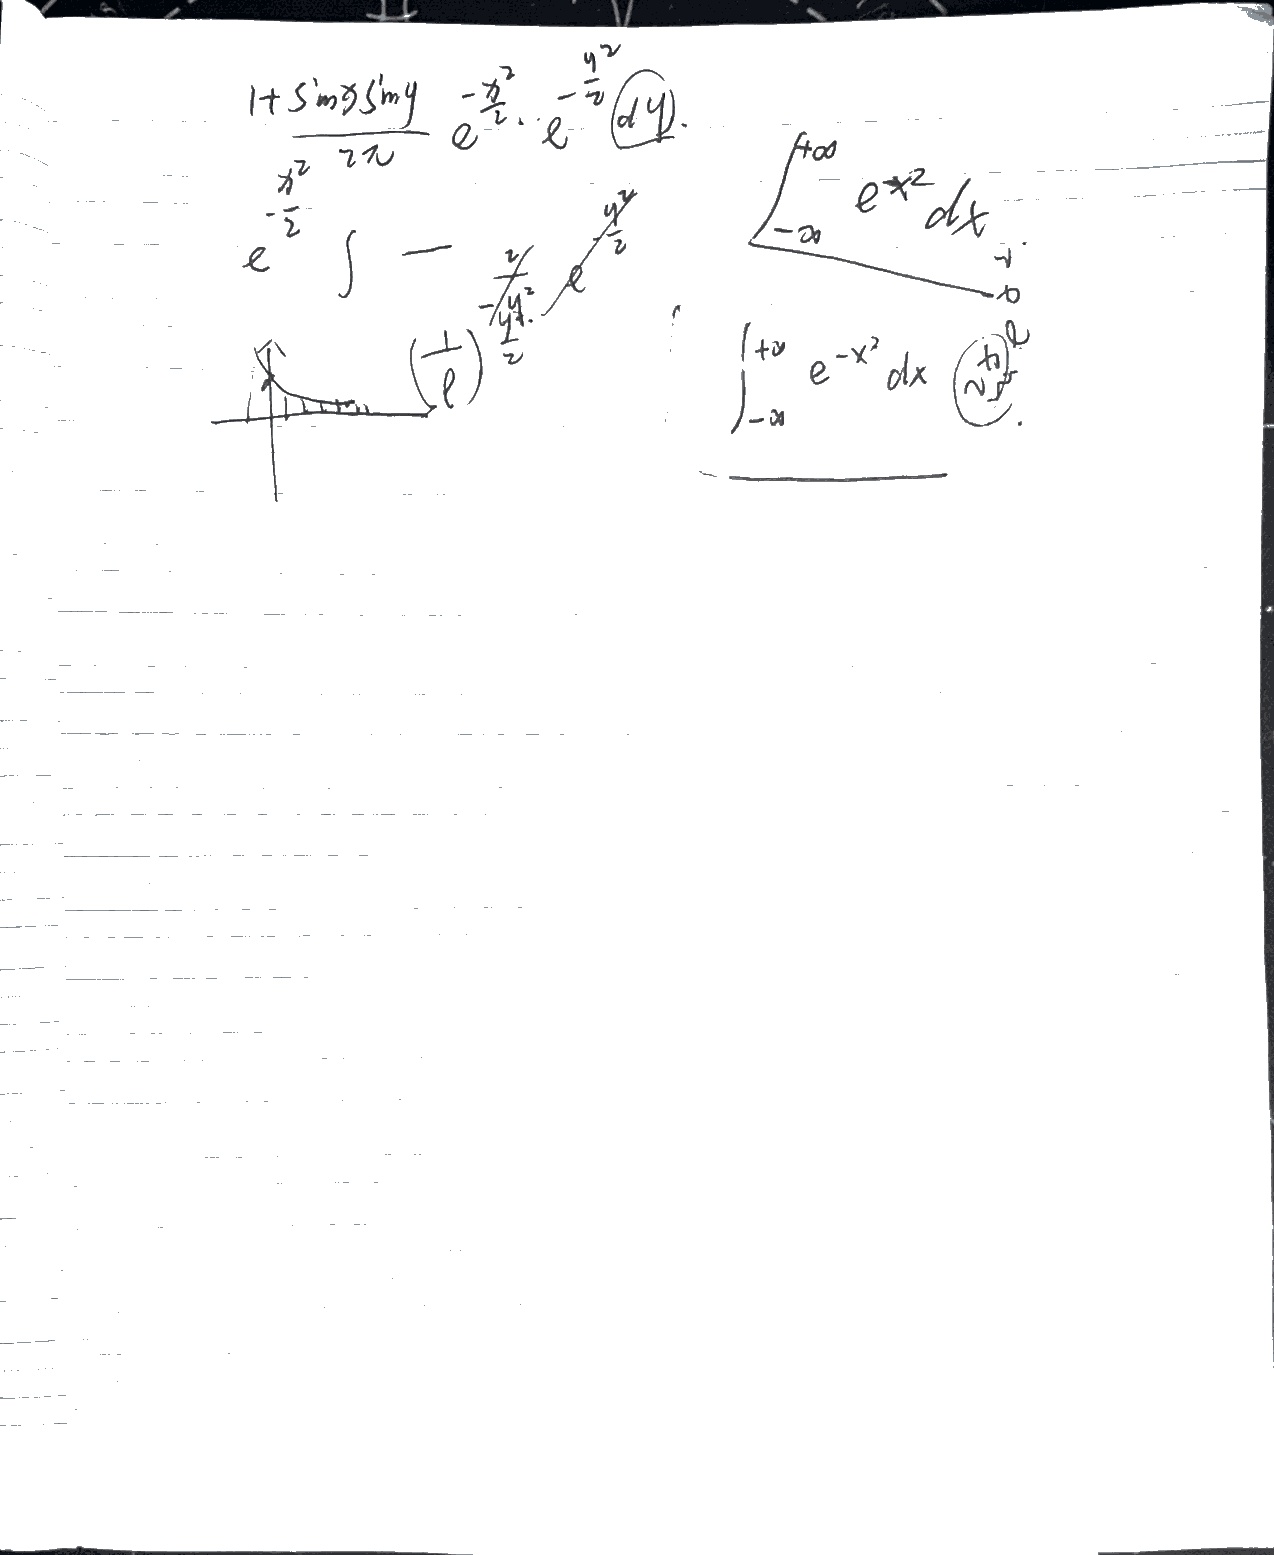 1+sinxsiny / 2π e^{-x²/2} · e^{-y²/2} dy.
e^{-x²/2} ∫ —
e^{-y²/2}
(1/e)^{y²/2}
∫_{-∞}^{+∞} e^{-x²} dx
∫_{-∞}^{+∞} e^{-x²} dx